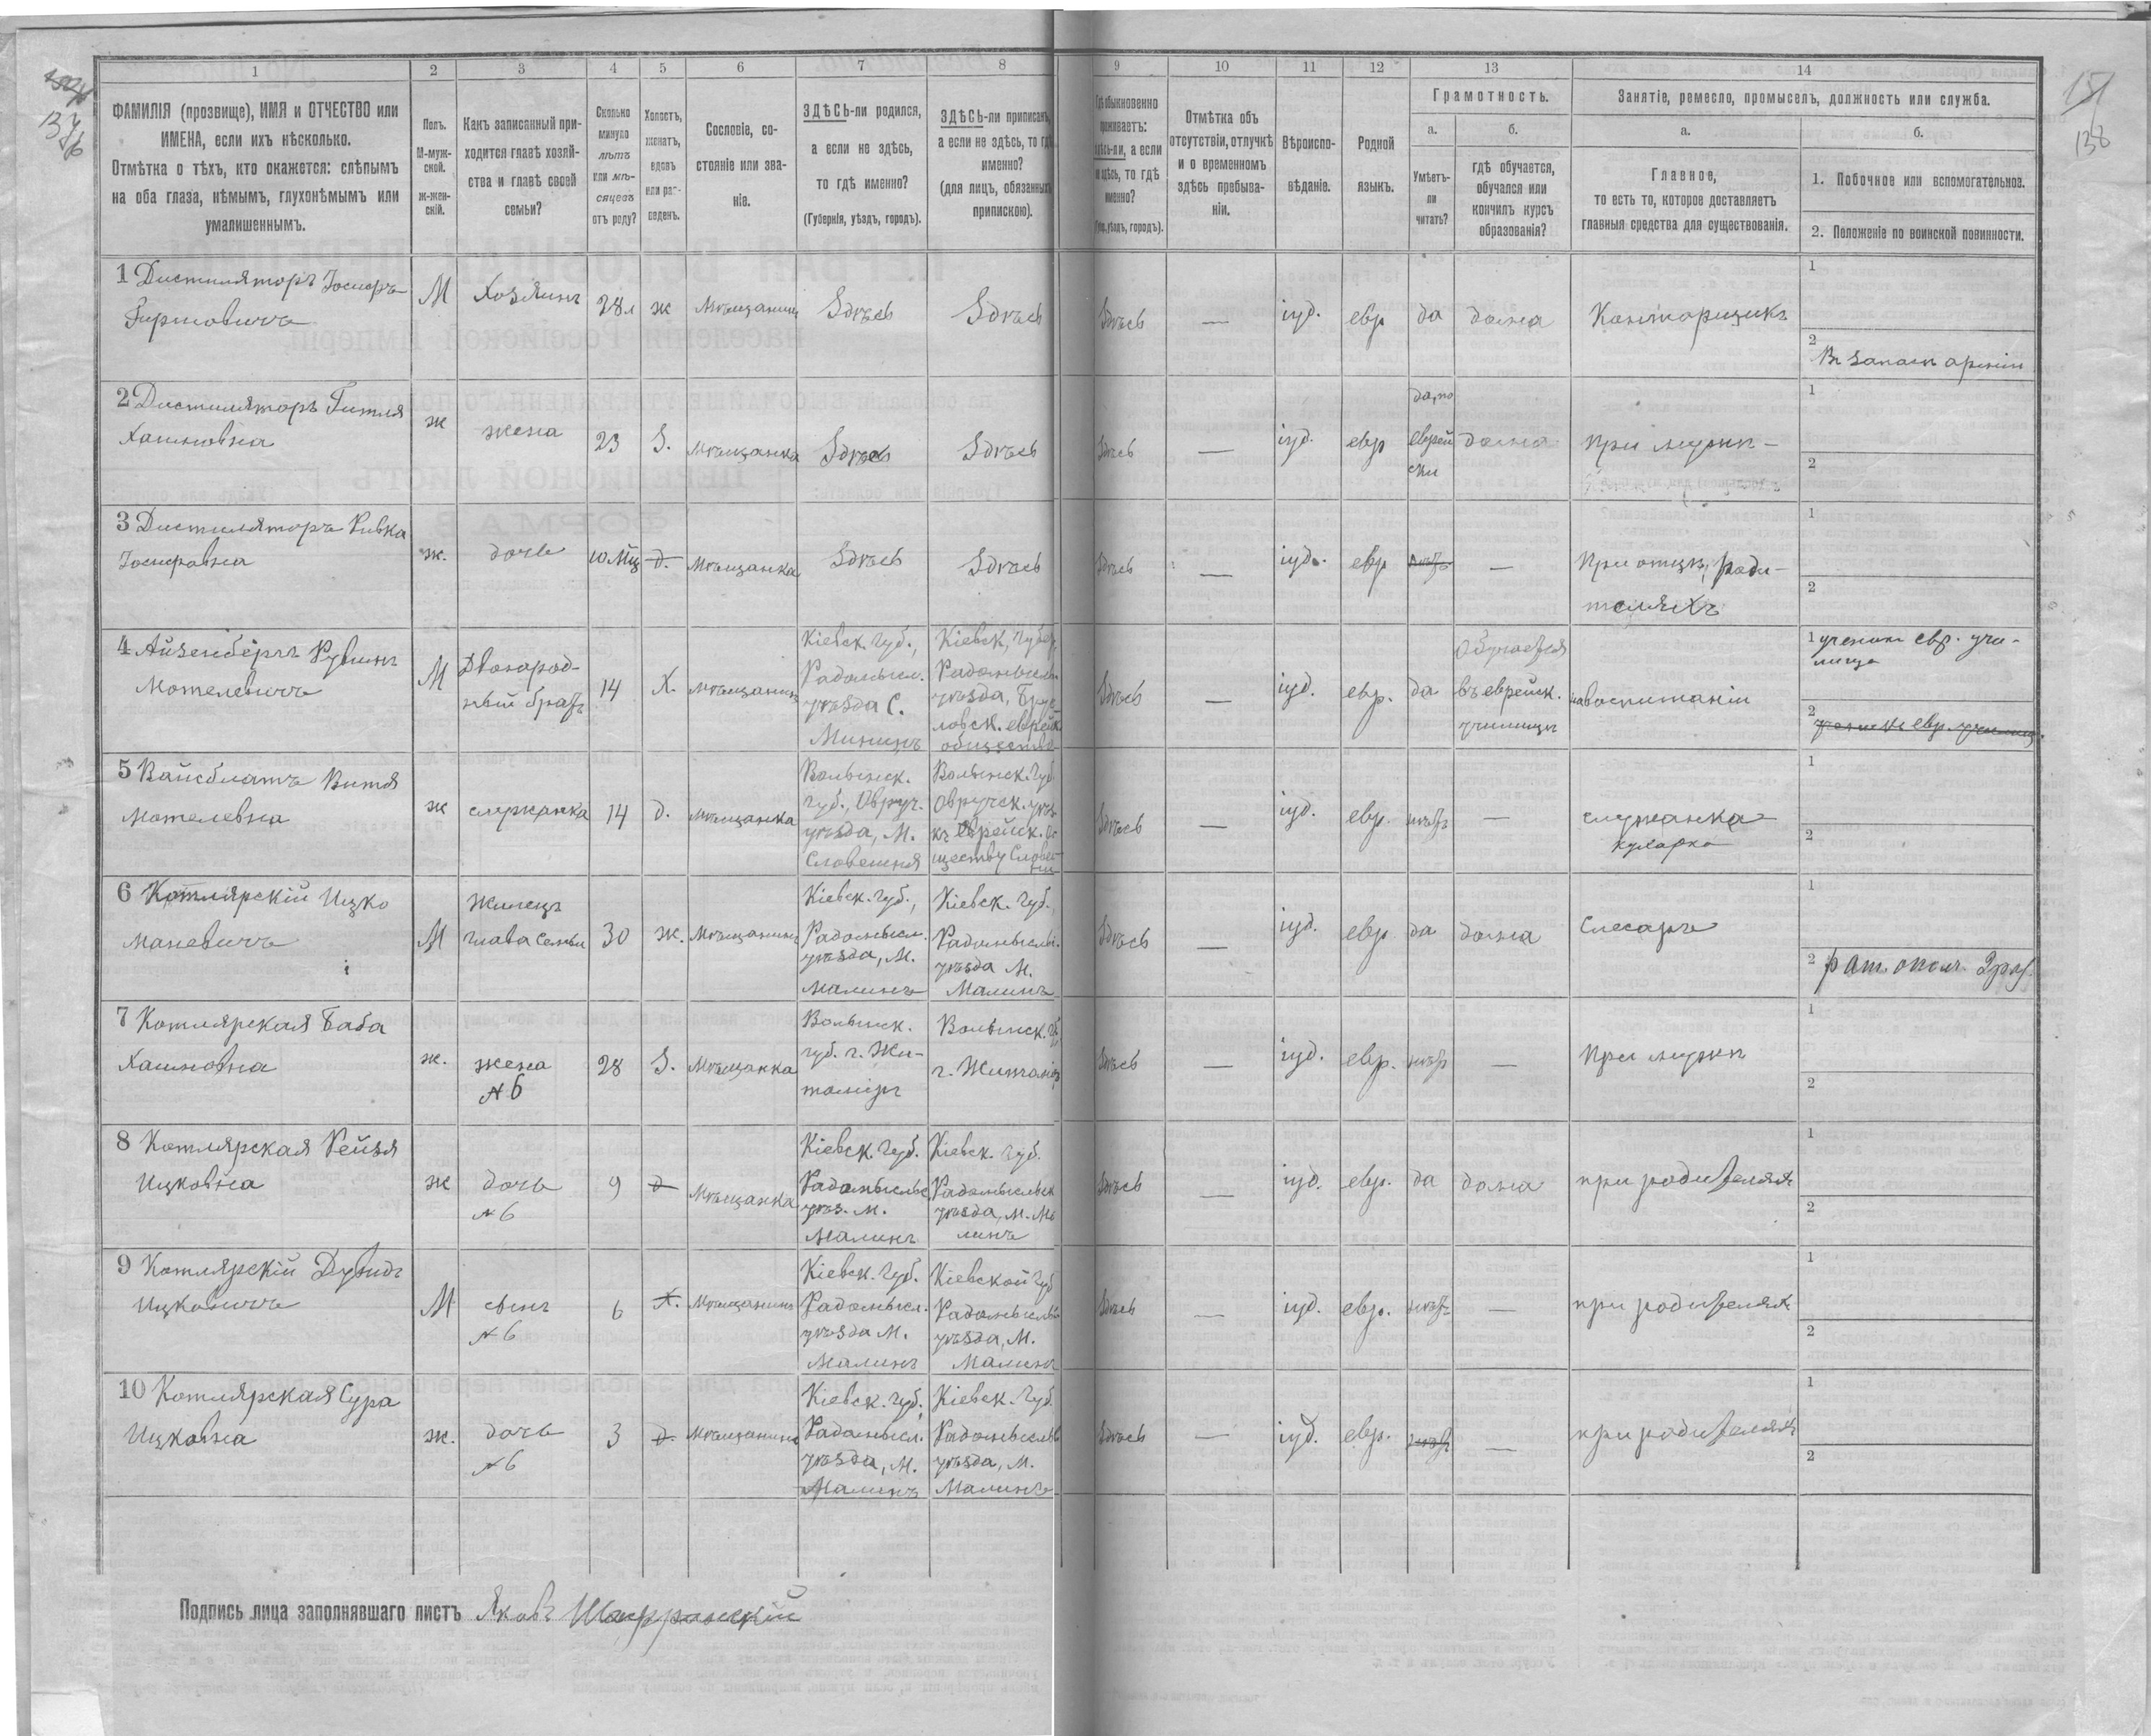 1 2 3 4 5 6 7 8 9 10 11 12 13 14
ФАМИЛІЯ (прозвище), ИМЯ и ОТЧЕСТВО или
ИМЕНА, если ихъ нѣсколько.
Отмѣтка о тѣхъ, кто окажется: слѣпымъ
на оба глаза, нѣмымъ, глухонѣмымъ или
умалишеннымъ.
Полъ.
М-муж-
ской.
ж-жен-
скій.
Какъ записанный при-
ходится главѣ хозяй-
ства и главѣ своей
семьи?
Сколько
минуло
лѣтъ
или мѣ-
сяцевъ
отъ роду?
Холостъ,
женатъ,
вдовъ
или раз-
веденъ.
Сословіе, со-
стояніе или зва-
ніе.
ЗДѢСЬ-ли родился,
а если не здѣсь,
то гдѣ именно?
(Губернія, уѣздъ, городъ).
ЗДѢСЬ-ли приписанъ,
а если не здѣсь, то гдѣ
именно?
(для лицъ, обязанныхъ
припискою).
Гдѣ обыкновенно
проживаетъ:
здѣсь-ли, а если
не здѣсь, то гдѣ
именно?
(Губ., уѣздъ, городъ).
Отмѣтка объ
отсутствіи, отлучкѣ
и о временномъ
здѣсь пребыва-
ніи.
Вѣроиспо-
вѣданіе.
Родной
языкъ.
Грамотность.
а.
Умѣетъ-
ли
читать?
б.
гдѣ обучается,
обучался или
кончилъ курсъ
образованія?
Занятіе, ремесло, промыселъ, должность или служба.
а.
Главное,
то есть то, которое доставляетъ
главныя средства для существованія.
б.
1. Побочное или вспомогательное.
2. Положеніе по воинской повинности.
138
1 Дистиляторъ Іосифъ
Гершовичъ
М Хозяинъ 28 л ж Мѣщанинъ Здѣсь Здѣсь Здѣсь — іуд. евр да дома Конторщикъ
1
2 Въ запасѣ арміи
2 Дистиляторъ Гитля
Хаимовна
ж жена 23 З. Мѣщанка Здѣсь Здѣсь Здѣсь — іуд. евр да, по
еврей
ски
дома При мужѣ –
1
2
3 Дистиляторъ Ривка
Іосифовна
ж. дочь 10 Мц д. Мѣщанка Здѣсь Здѣсь Здѣсь — іуд. евр нѣтъ — При отцѣ, роди-
теляхъ
1
2
4 Айзенбергъ Рувинъ
Мотелевичъ
М Двоюрод-
ный братъ
14 Х. мѣщанинъ
Кіевск. губ.,
Радомысл.
уѣзда С.
Мининъ
Кіевск. губер,
Радомысльс
уѣзда,
ловск. еврейск
общество
Здѣсь — іуд. евр. да
Обучается
въ еврейск.
училищѣ
на воспитаніи
1 ученикъ евр. учи-
лища
2 ученикъ евр. училищ.
5 Вайсблатъ Витя
Мотелевна
ж служанка 14 д. мѣщанка
Волынск.
губ., Овруч.
уѣзда, М.
Словешня
Волынск. губ
Овручск. уѣз
къ еврейск. об
ществу Слове
Здѣсь — іуд. евр. нѣтъ — служанка
кухарка
1
2
6 Котлярскій Ицко
Маневичъ
М Жилецъ
глава семьи
30 ж. Мѣщанинъ
Кіевск. губ.,
Радомысл.
уѣзда, М.
Малинъ
Кіевск. губ.,
Радомысльс.
уѣзда М.
Малинъ
Здѣсь — іуд. евр да дома Слесарь
1
2 рат. ополч. 2 раз.
7 Котлярская Баба
Хаимовна
ж. жена
№ 6
28 З. Мѣщанка
Волынск.
губ. г. Жи-
томіръ
Волынск. губ
г. Житомір
Здѣсь — іуд. евр. нѣтъ — При мужѣ
1
2
8 Котлярская Рейзя
Ицковна
ж дочь
№ 6
9 д Мѣщанка
Кіевск. губ.
Радомысльс
уѣз. М.
Малинъ
Кіевск. губ.
Радомысльск
уѣзда, М. Ма
линъ
Здѣсь — іуд. евр. да дома при родителяхъ
1
2
9 Котлярскій Дувидъ
Ицковичъ
М сынъ
№ 6
6 Х. Мѣщанинъ
Кіевск. губ.
Радомысл.
уѣзда М.
Малинъ
Кіевской губ
Радомысльс
уѣзда, М.
Малинъ
Здѣсь — іуд. евр. нѣтъ — при родителяхъ
1
2
10 Котлярская Сура
Ицковна
ж. дочь
№ 6
3 д. Мѣщанинка
Кіевск. губ.,
Радомысл.
уѣзда, М.
Малинъ
Кіевск. губ.
Радомысльс
уѣзда, М.
Малинъ
Здѣсь — іуд. евр. нѣтъ — при родителяхъ
1
2
Подпись лица заполнявшаго листъ Яковъ